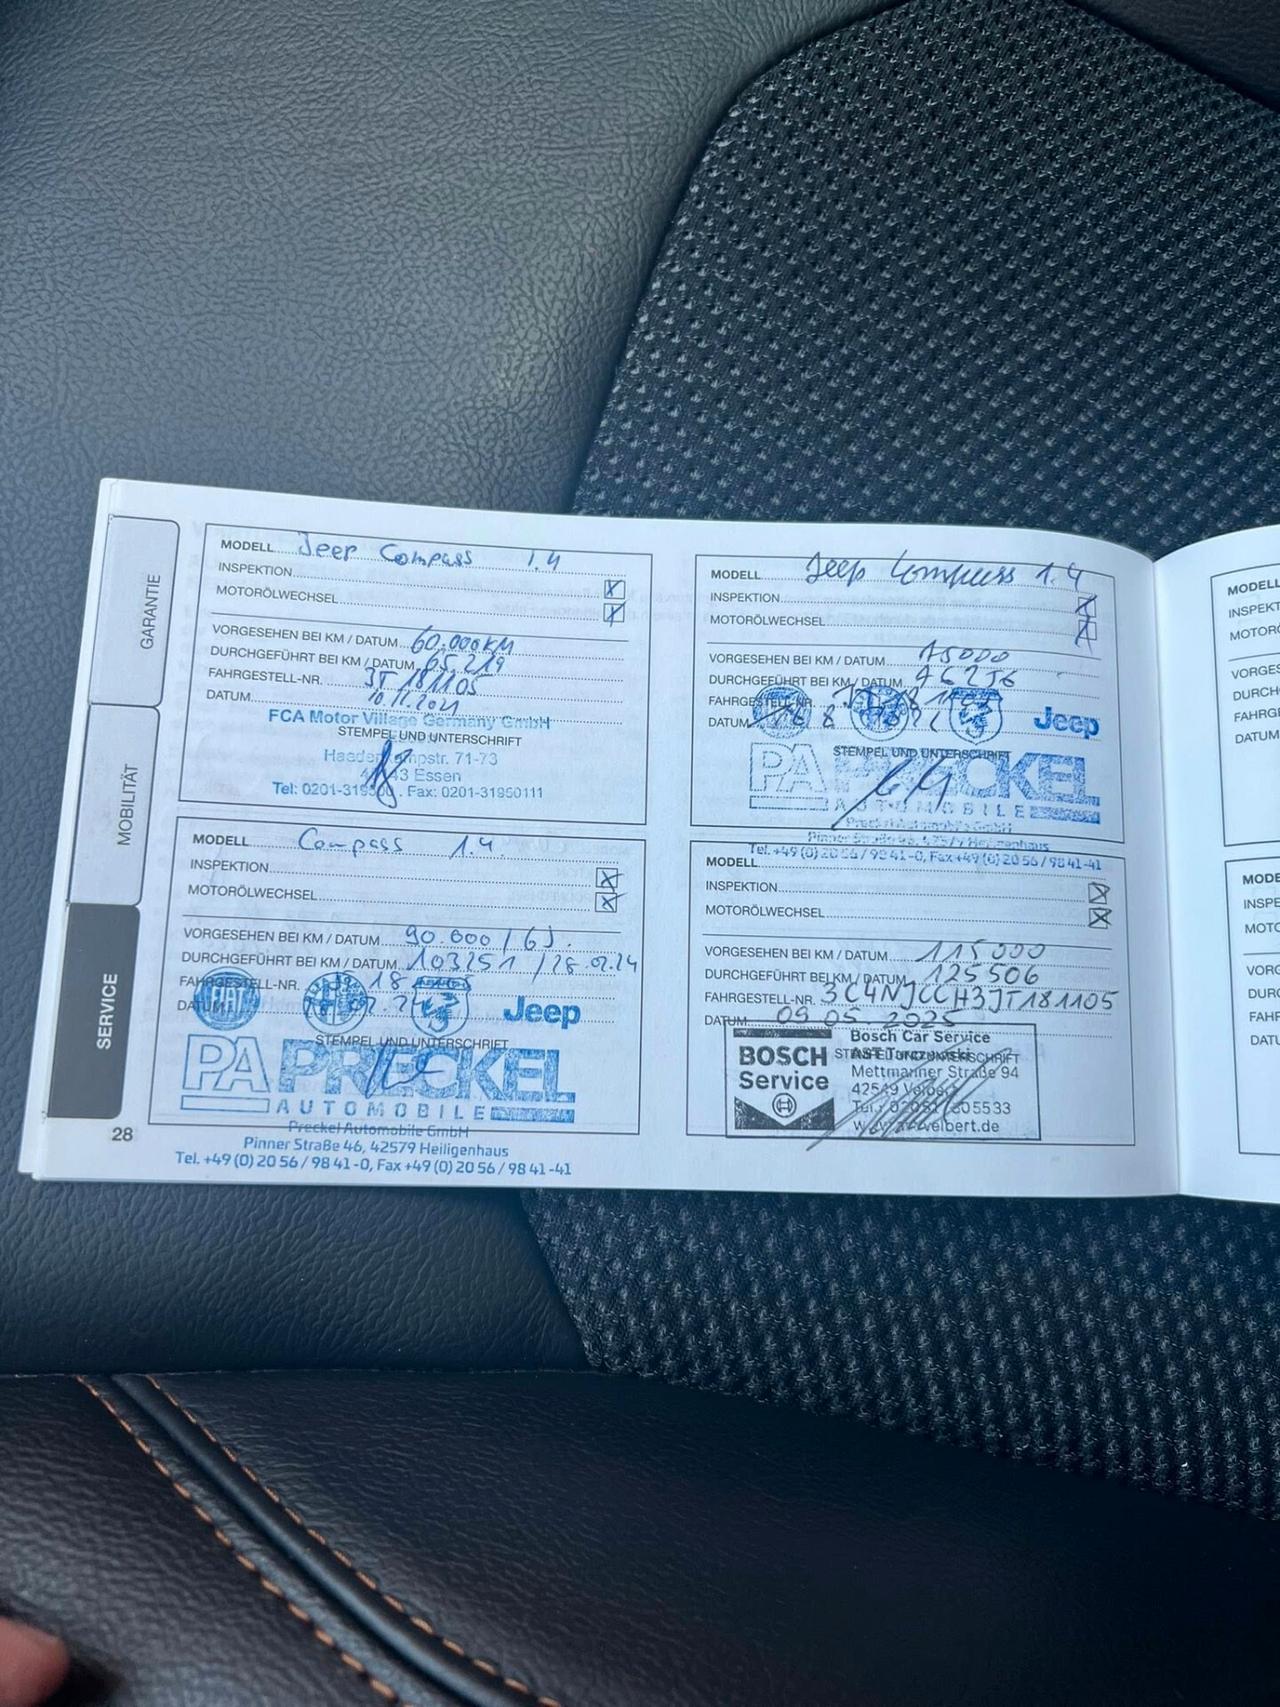 GARANTIE
MOBILITÄT
SERVICE
MODELL Jeep Compass 1.4
INSPEKTION X
MOTORÖLWECHSEL X
VORGESEHEN BEI KM / DATUM 60.000KM
DURCHGEFÜHRT BEI KM / DATUM 65.219
FAHRGESTELL-NR. JT 181105
DATUM 10.11.2021
FCA Motor Village Germany GmbH
STEMPEL UND UNTERSCHRIFT
71-73
Essen
Tel: Fax: 0201-31950111
MODELL Jeep Compass 1.4
INSPEKTION X
MOTORÖLWECHSEL X
VORGESEHEN BEI KM / DATUM
DURCHGEFÜHRT BEI KM / DATUM
FAHRGESTELL-NR.
DATUM
Jeep
STEMPEL UND UNTERSCHRIFT
PA PRECKEL
AUTOMOBILE
Preckel Automobile GmbH
Pinner Straße 46, 42579 Heiligenhaus
Tel. +49 (0) 20 56 / 98 41-0, Fax +49 (0) 20 56 / 98 41-41
MODELL Compass 1.4
INSPEKTION X
MOTORÖLWECHSEL X
VORGESEHEN BEI KM / DATUM 90.000 / 6J.
DURCHGEFÜHRT BEI KM / DATUM 103251 / 28.02.24
FAHRGESTELL-NR.
DATUM
FIAT
Jeep
STEMPEL UND UNTERSCHRIFT
PA PRECKEL
AUTOMOBILE
Preckel Automobile GmbH
Pinner Straße 46, 42579 Heiligenhaus
Tel. +49 (0) 20 56 / 98 41-0, Fax +49 (0) 20 56 / 98 41-41
MODELL
INSPEKTION X
MOTORÖLWECHSEL X
VORGESEHEN BEI KM / DATUM 115000
DURCHGEFÜHRT BEI KM / DATUM 125506
FAHRGESTELL-NR. 3C4NJCCH3JT181105
DATUM 09.05.2025
BOSCH
Service
Bosch Car Service
STEMPEL UND UNTERSCHRIFT
Mettmanner Straße 94
28
MODELL